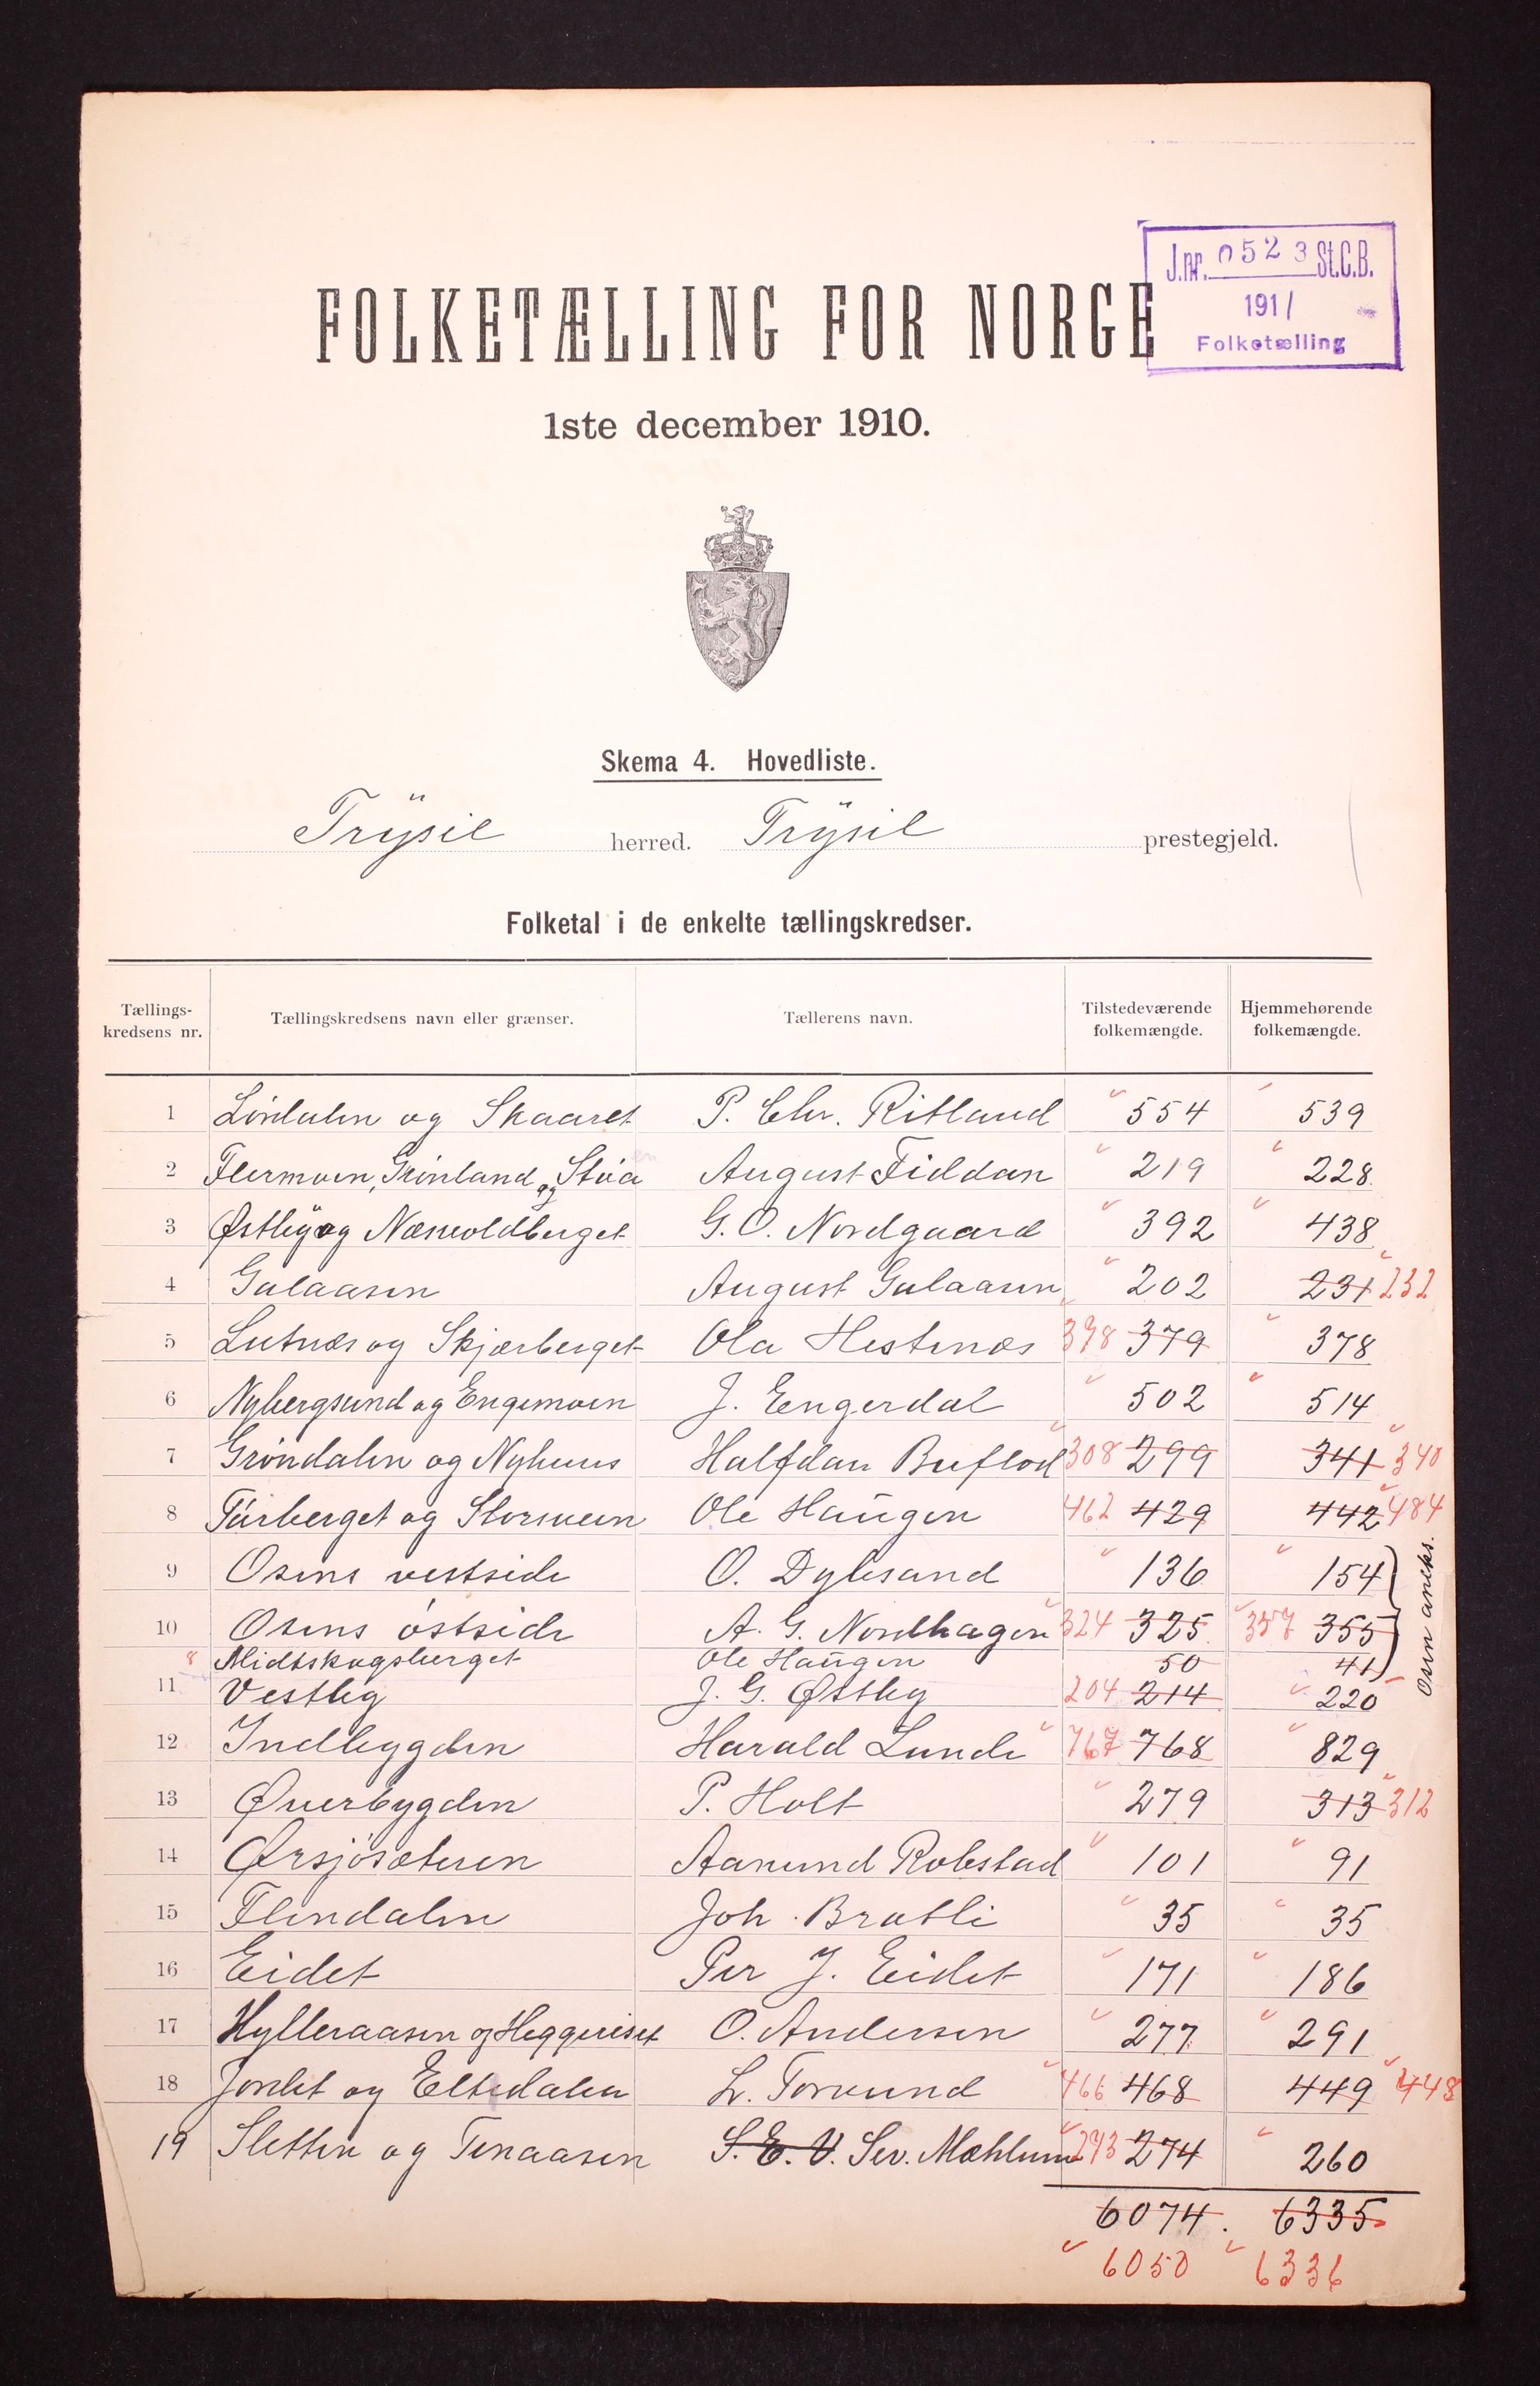 J.nr. 0523 St.C.B.
1911
Folketælling
FOLKETÆLLING FOR NORGE
1ste december 1910.
Skema 4. Hovedliste.
Trÿsil herred. Trÿsil prestegjeld.
Folketal i de enkelte tællingskredser.
Tællings-kredsens nr. Tællingskredsens navn eller grænser. Tællerens navn. Tilstedeværende folkemængde. Hjemmehørende folkemængde.
1 Lördalen og Skaaret P. Chr. Ritland 554 539
2 Flermoen, Grönland og Støa August Fiddan 219 228
3 Østby og Næsvoldberget G. O. Nordgaard 392 438
4 Galaasen August Galaasen 202 231 232
5 Lutnæs og Skjærberget Ola Hestnæs 378 379 378
6 Nybergsund og Engemoen J. Engerdal 502 514
7 Gröndalen og Nyhuus Halfdan Buflod 308 299 341 340
8 Tørberget og Storsveen Ole Haugen 462 429 442 484
9 Osens vestside O. Dybsand 136 154
10 Osens östside A. G. Nordhagen 324 325 357 355
8 Midtskogsberget Ole Haugen 50 41
Osen aneks.
11 Vestby J. G. Østby 204 214 220
12 Indbygden Harald Lunde 767 768 829
13 Øverbygden P. Holt 279 313 312
14 Ørsjösæteren Aanund Robstad 101 91
15 Flendalen Joh. Bratli 35 35
16 Eidet Per J. Eidet 171 186
17 Hylleraasen og Heggeriset O. Andersen 277 291
18 Jordet og Eltedalen L. Torvund 466 468 449 448
19 Sletten og Tenaasen S. E. V. Sev. Mæhlum 273 274 260
6074. 6335
6050 6336